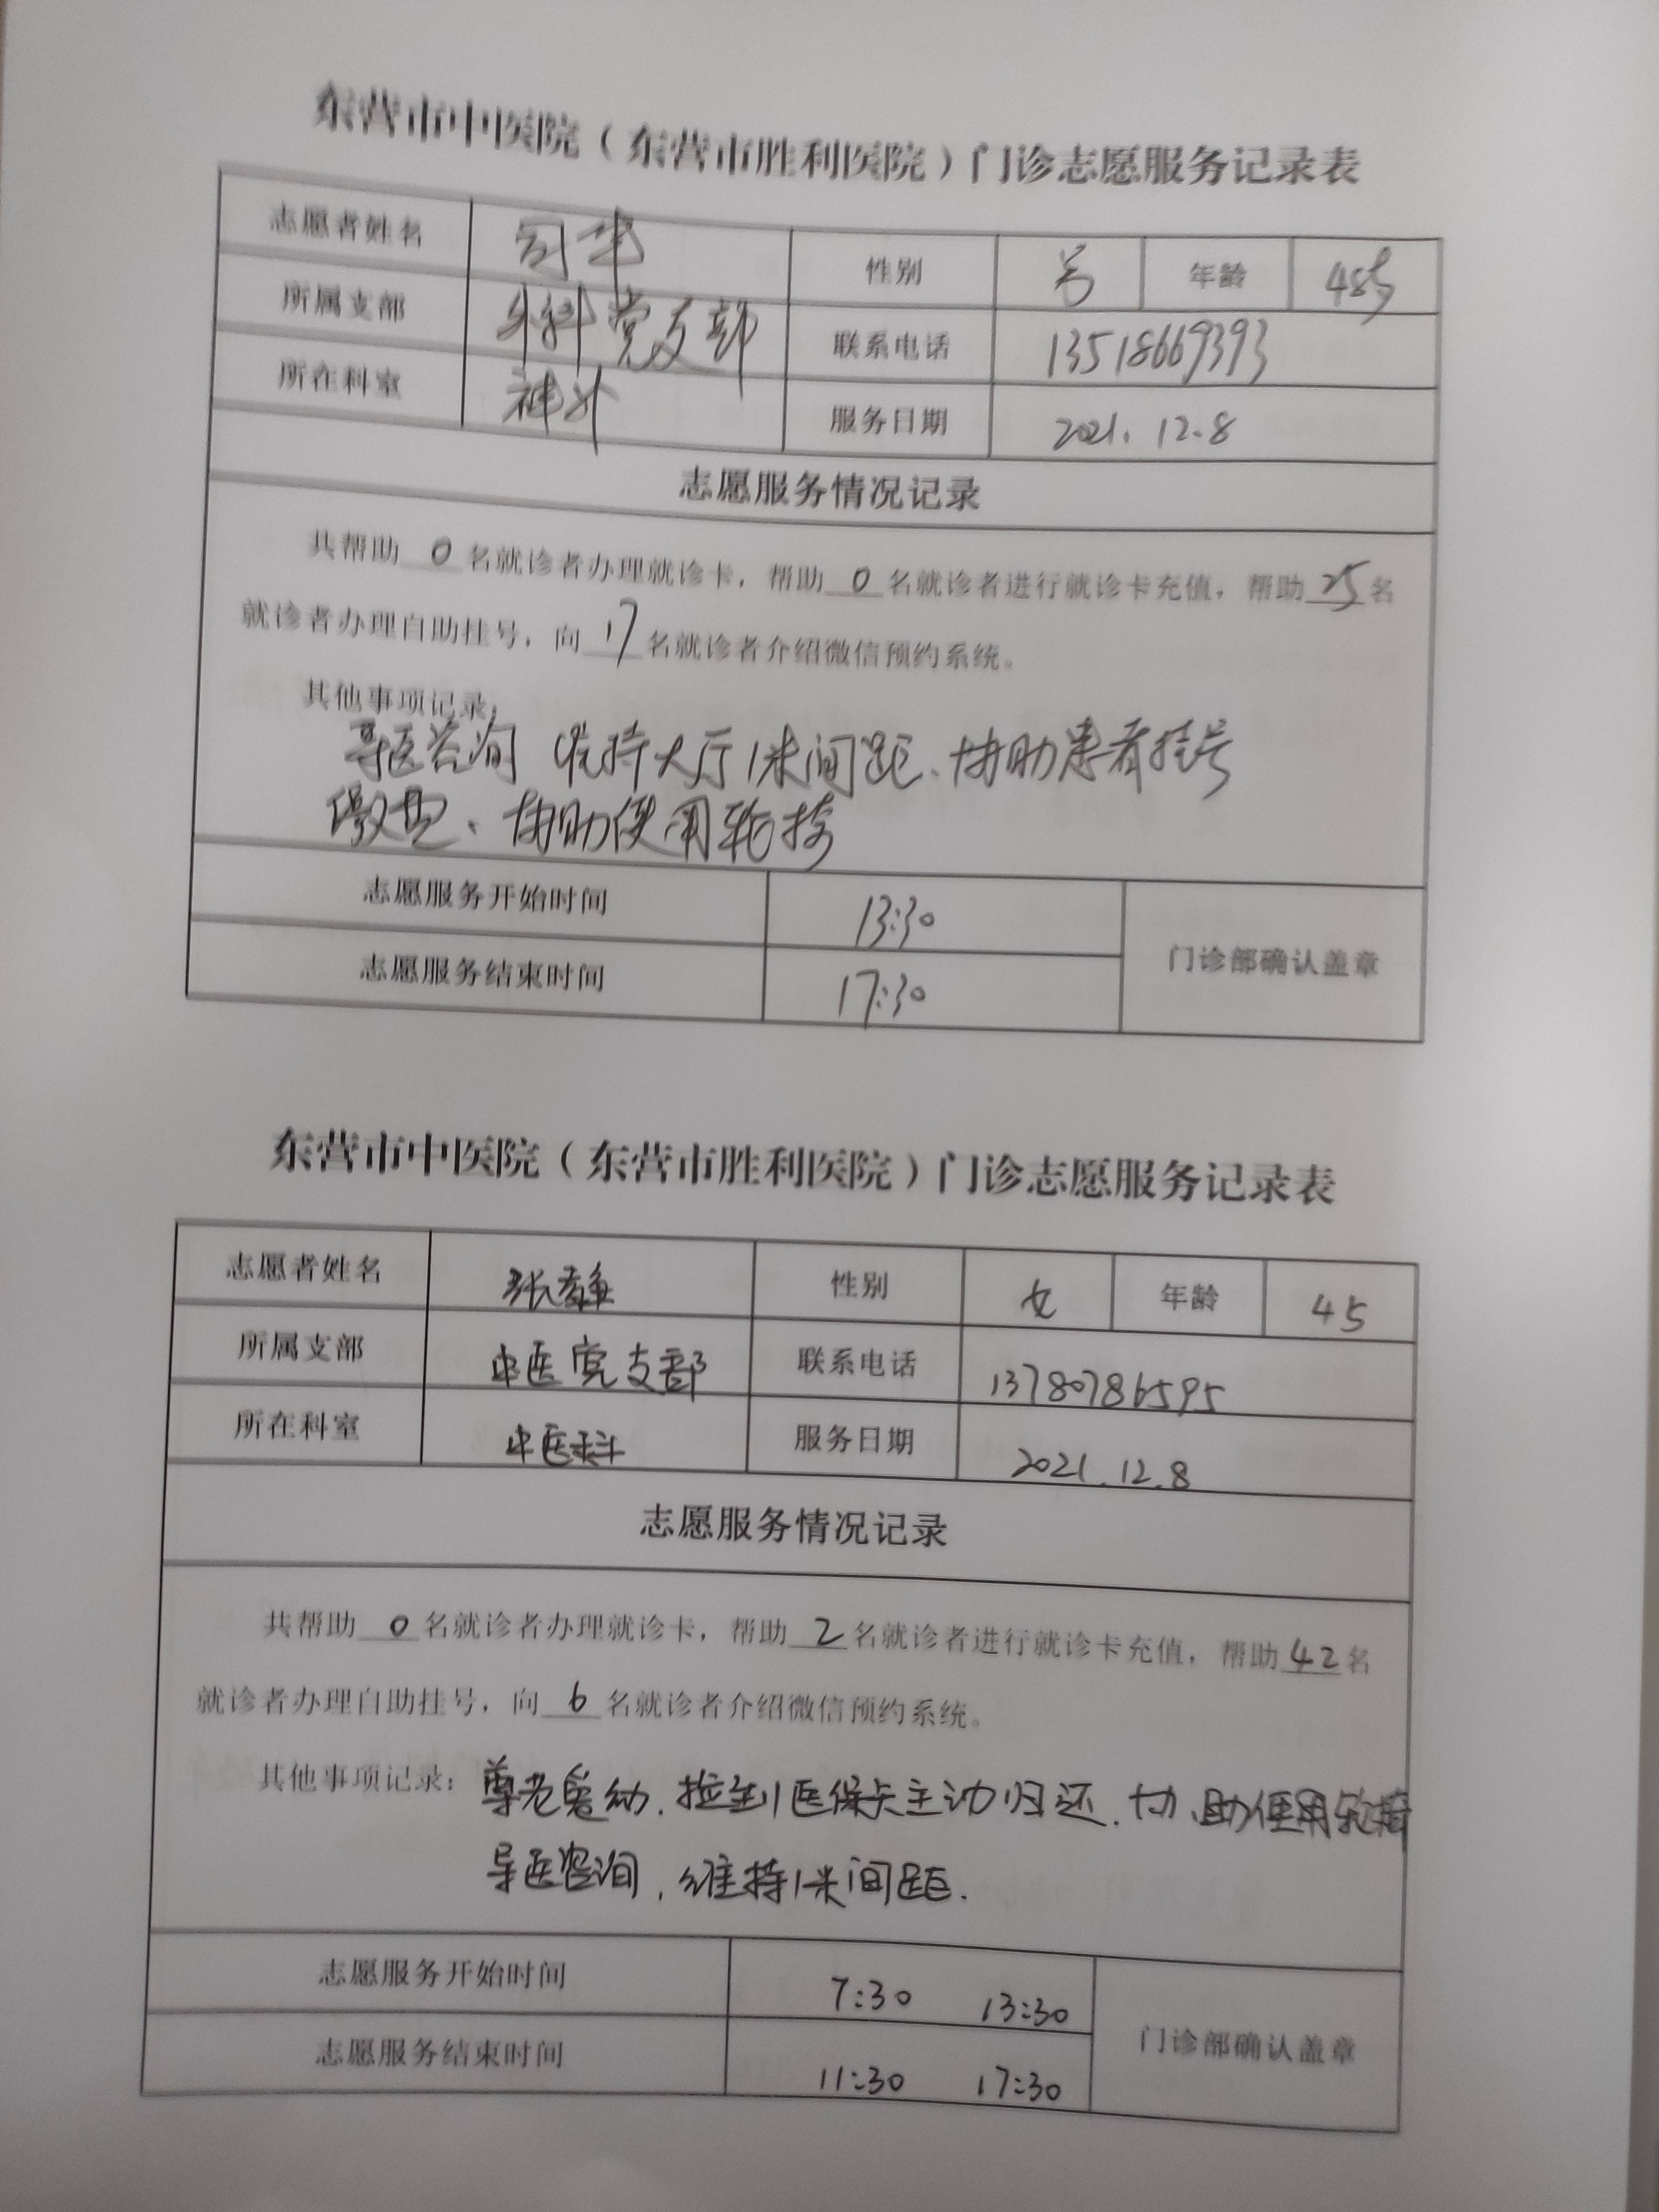 东营市中医院（东营市胜利医院）门诊志愿服务记录表
志愿者姓名 司华 性别 男 年龄 48岁
所属支部 外科党支部 联系电话 13518669393
所在科室 神外 服务日期 2021.12.8
志愿服务情况记录
共帮助 0 名就诊者办理就诊卡，帮助 0 名就诊者进行就诊卡充值，帮助 25 名
就诊者办理自助挂号，向 17 名就诊者介绍微信预约系统。
其他事项记录：
导医咨询 维持大厅1米间距、协助患者挂号
缴费、协助使用轮椅
志愿服务开始时间 13:30
门诊部确认盖章
志愿服务结束时间 17:30
东营市中医院（东营市胜利医院）门诊志愿服务记录表
志愿者姓名 张 性别 女 年龄 45
所属支部 中医党支部 联系电话 13780786595
所在科室 中医科 服务日期 2021.12.8
志愿服务情况记录
共帮助 0 名就诊者办理就诊卡，帮助 2 名就诊者进行就诊卡充值，帮助 42 名
就诊者办理自助挂号，向 6 名就诊者介绍微信预约系统。
其他事项记录：尊老爱幼.捡到医保卡主动归还.协助使用轮椅
导医咨询，维持1米间距.
志愿服务开始时间 7:30 13:30
门诊部确认盖章
志愿服务结束时间 11:30 17:30